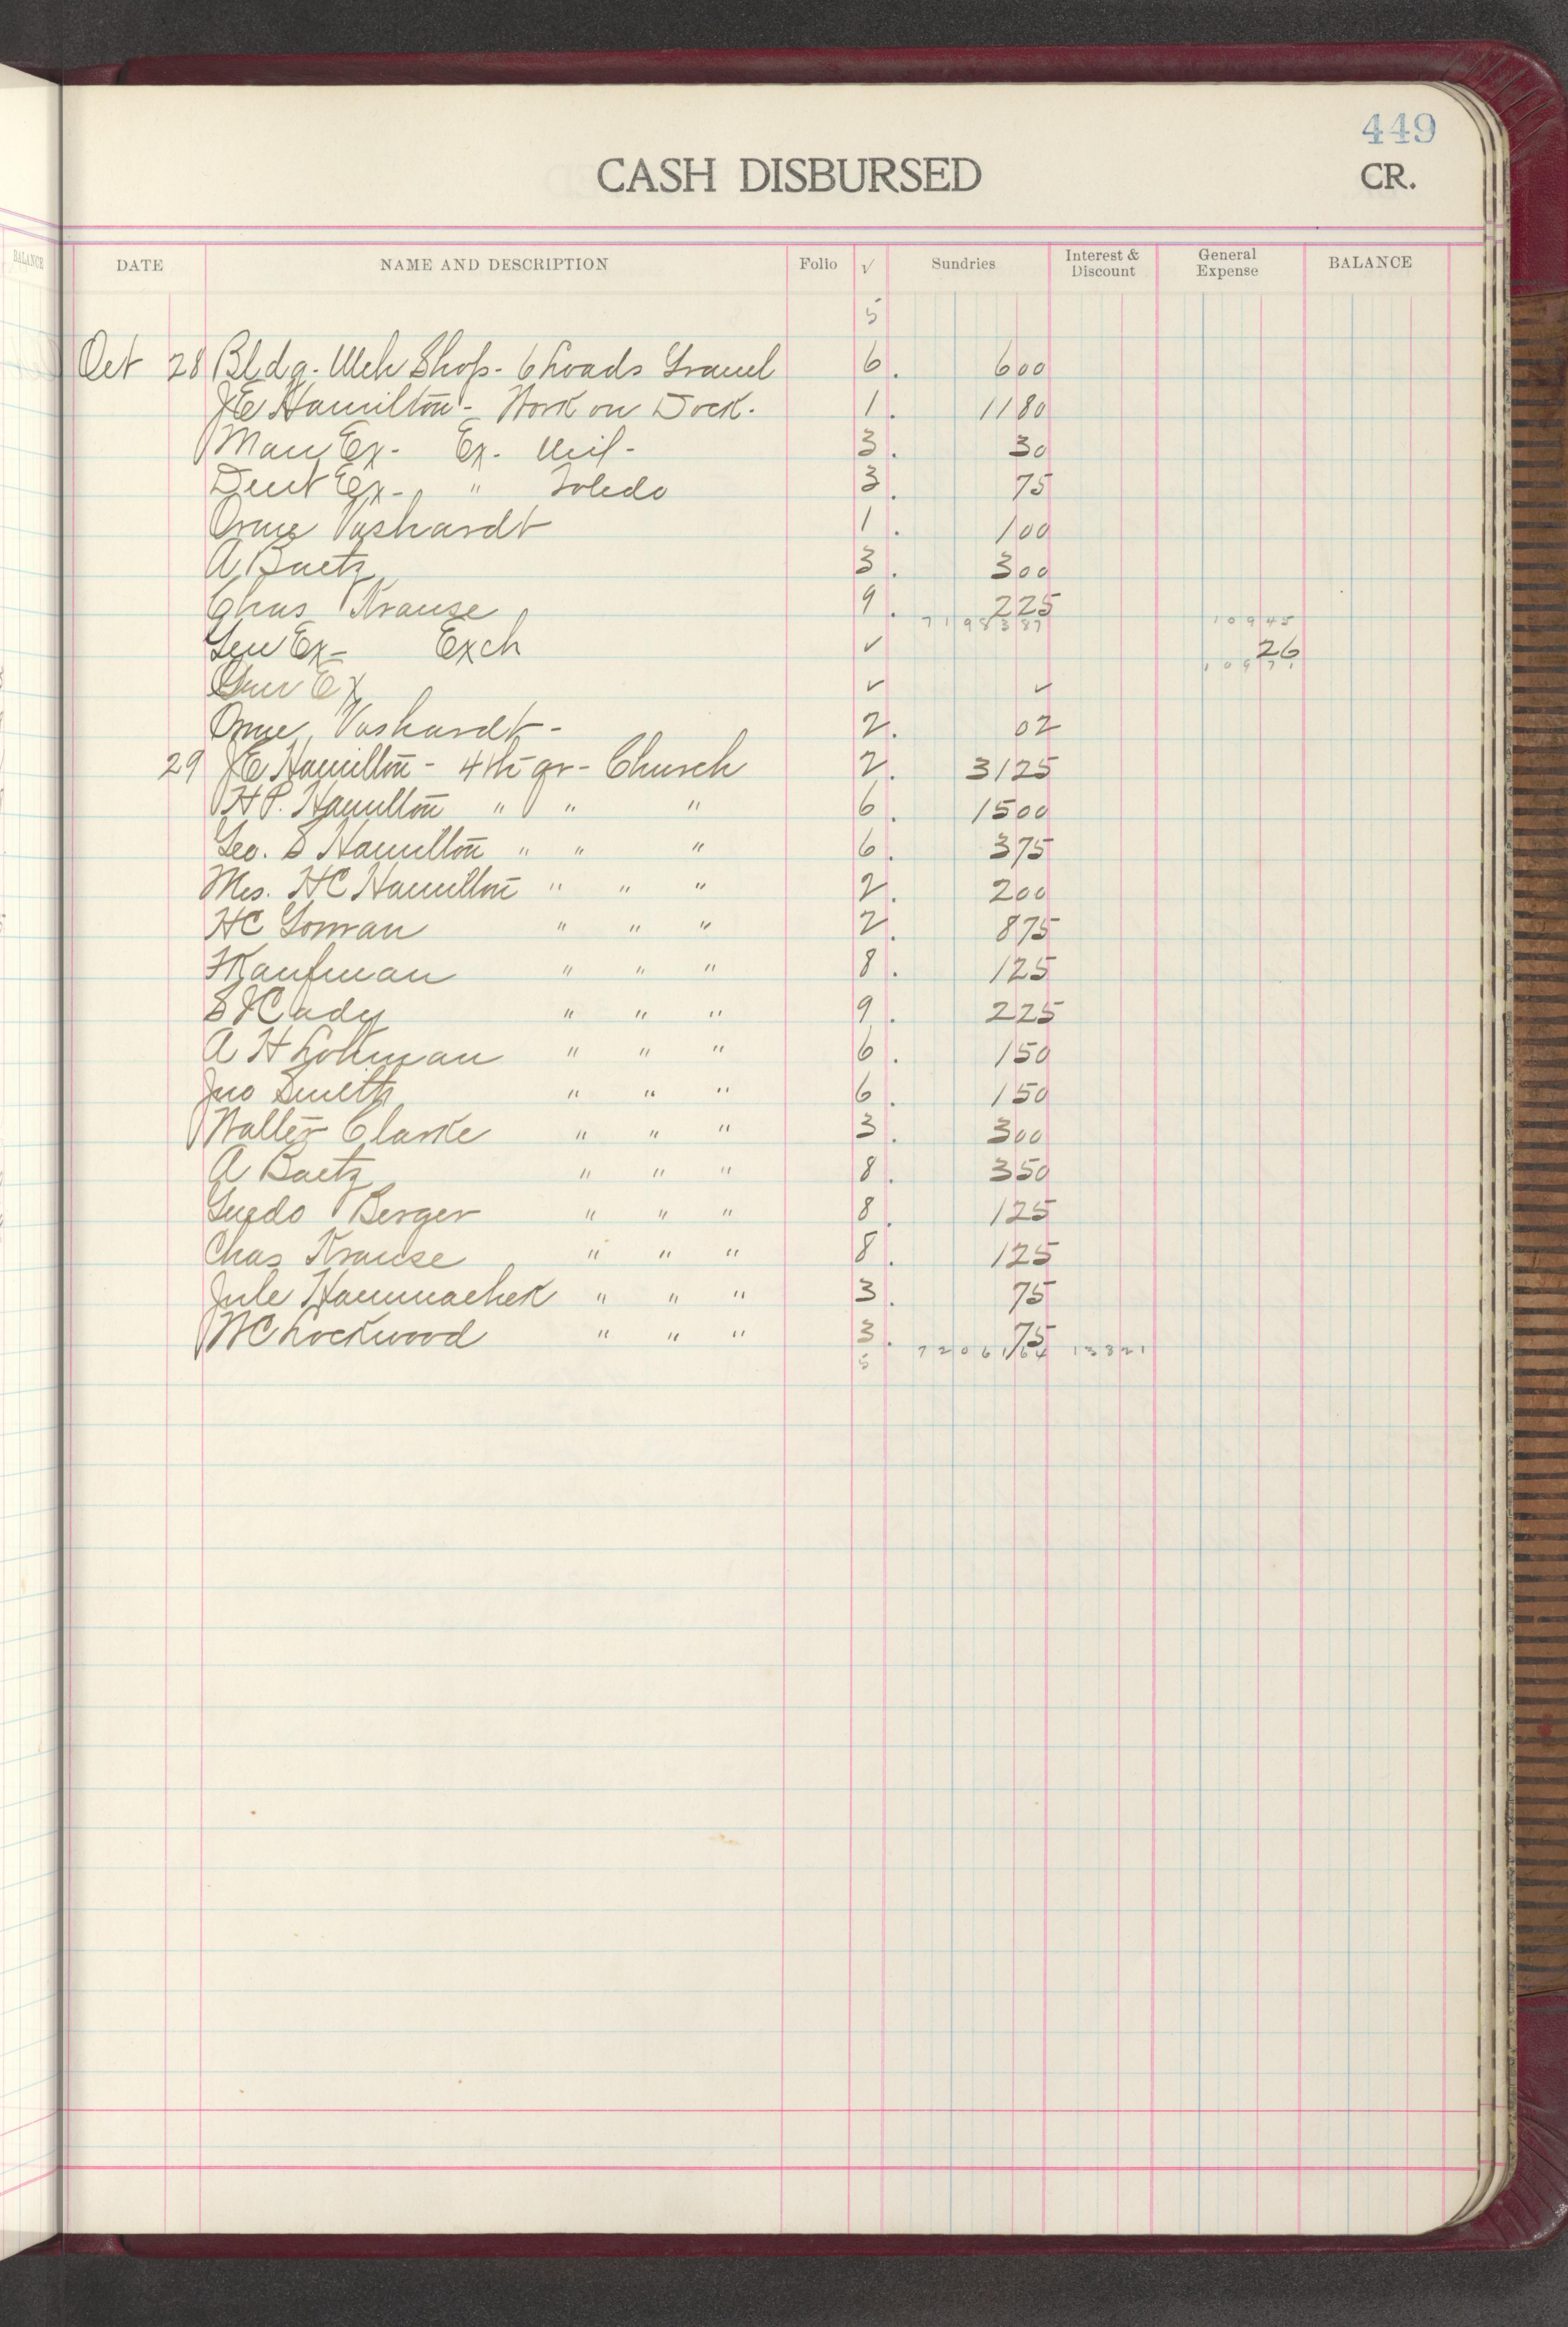 449
CASH DISBURSED CR.
BALANCE DATE NAME AND DESCRIPTION Folio √ Sundries Interest & Discount General Expense BALANCE
5
Oct 28 Bldg. Mch Shop - 6 Loads Gravel 6 . 600
JE Hamilton - Work on Dock. 1 . 1180
Man Ex - Ex. Mil - 3 . 30
Ex - " Toledo 3 . 75
Vashardt 1 . 100
A Baetz 3 . 300
Chas Krause 9 . 225
7198387 10945
Gen Ex - Exch ✓ 26
10971
Gen Ex ✓ ✓
Vashardt - 2 . 02
29 JE Hamilton - 4th qr - Church 2 . 3125
H P. Hamilton " " " 6 . 1500
Geo. S Hamilton " " " 6 . 375
Mrs. HC Hamilton " " " 2 . 200
HC Gowran " " " 2 . 875
Kaufman " " " 8 . 125
S J Cady " " " 9 . 225
A H Lohman " " " 6 . 150
Jno Smith " " " 6 . 150
Walter Clarke " " " 3 . 300
A Baetz " " " 8 . 350
Guedo Berger " " " 8 . 125
Chas Krause " " " 8 . 125
Jule Hammachek " " " 3 . 75
WC Lockwood " " " 3 . 75
5 7206164 13821